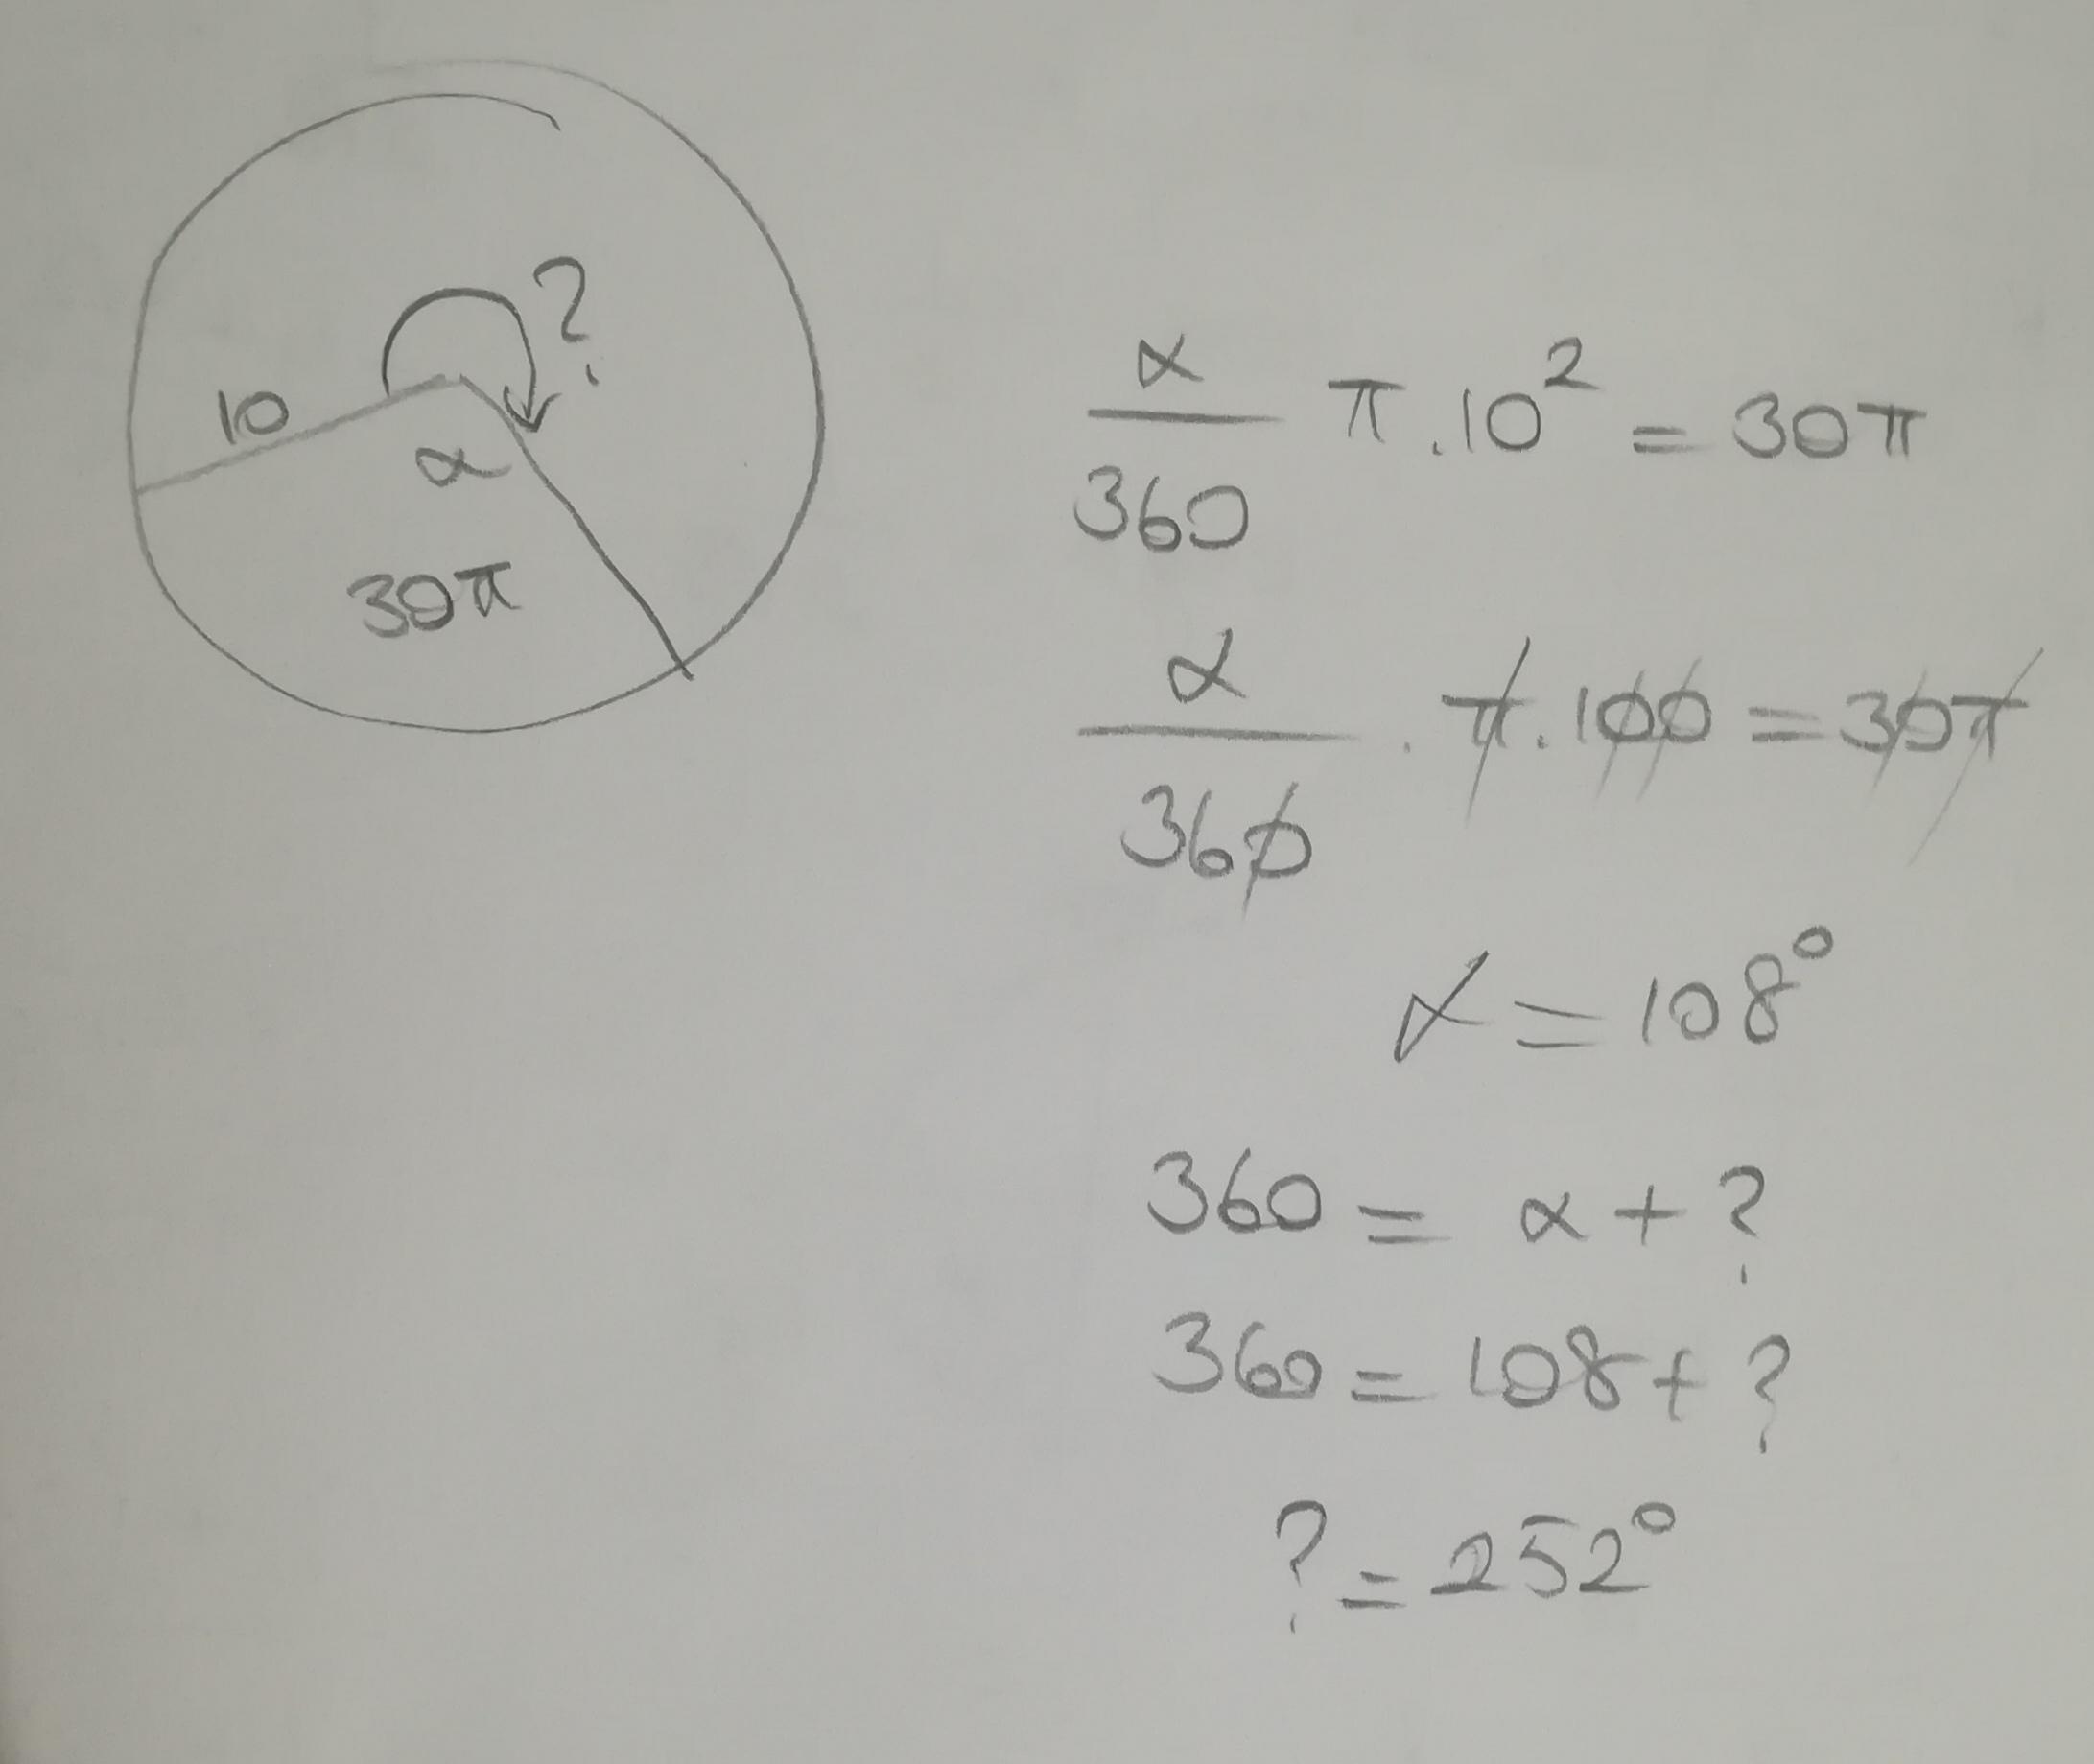 ?
10
α
30π
α/360 π.10² = 30π
α/360 . π.100 = 30π
α = 108°
360 = α + ?
360 = 108 + ?
? = 252°